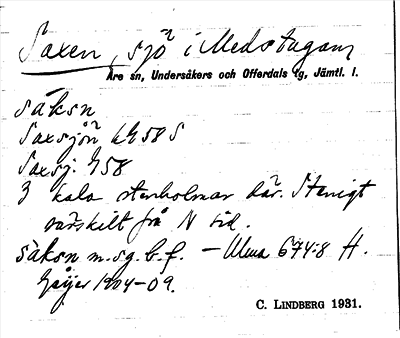 Saxen, sjö i Medstugan,
Åre sn, Undersåkers och Offerdals tg, Jämtl. l.
säksn
Saxsjön 49 58 S
Saxsj. G 58
3 kala stenholmar där. Stenigt
särskilt från N sid.
säksn m.sg.b.f. – Ulma 674:8 H.
Geijer 1904–09.
C. LINDBERG 1931.